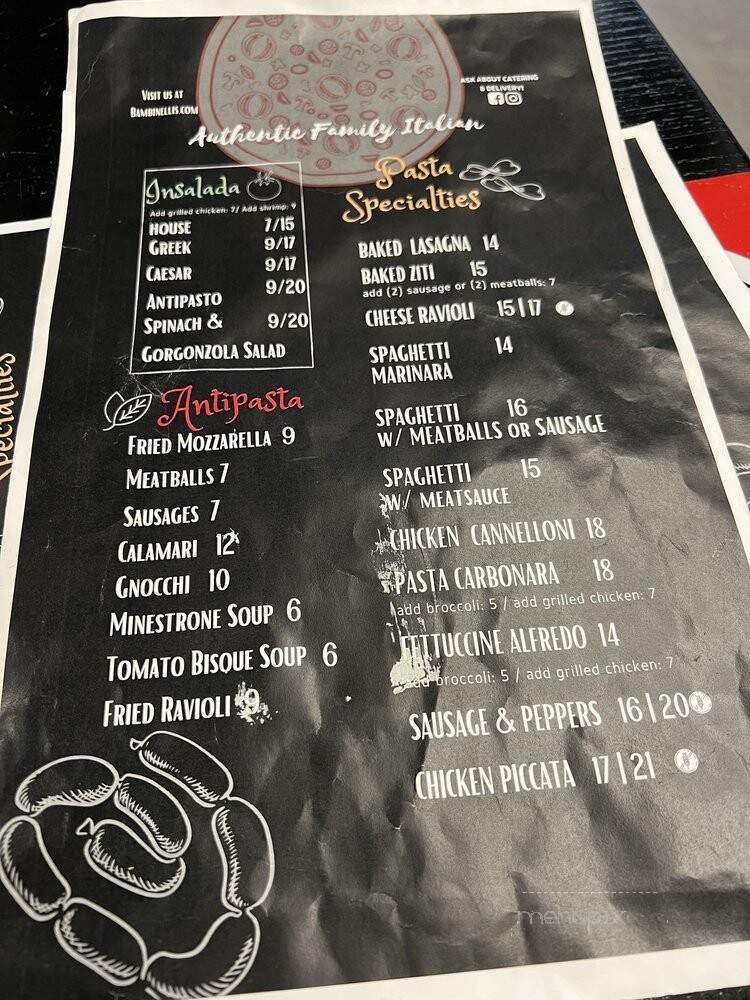 Visit us at
Bambinellis.com
ASK ABOUT CATERING
& DELIVERY!
Authentic Family Italian
Insalada
Add grilled chicken: 7/ Add shrimp: 9
HOUSE 7/15
GREEK 9/17
CAESAR 9/17
ANTIPASTO 9/20
SPINACH & 9/20
GORGONZOLA SALAD
Antipasta
FRIED MOZZARELLA 9
MEATBALLS 7
SAUSAGES 7
CALAMARI 12
GNOCCHI 10
MINESTRONE SOUP 6
TOMATO BISQUE SOUP 6
FRIED RAVIOLI 9
Pasta
Specialties
BAKED LASAGNA 14
BAKED ZITI 15
add (2) sausage or (2) meatballs: 7
CHEESE RAVIOLI 15|17
SPAGHETTI 14
MARINARA
SPAGHETTI 16
W/ MEATBALLS OR SAUSAGE
SPAGHETTI 15
W/ MEATSAUCE
CHICKEN CANNELLONI 18
PASTA CARBONARA 18
add broccoli: 5 / add grilled chicken: 7
FETTUCCINE ALFREDO 14
add broccoli: 5 / add grilled chicken: 7
SAUSAGE & PEPPERS 16|20
CHICKEN PICCATA 17|21
Specialties